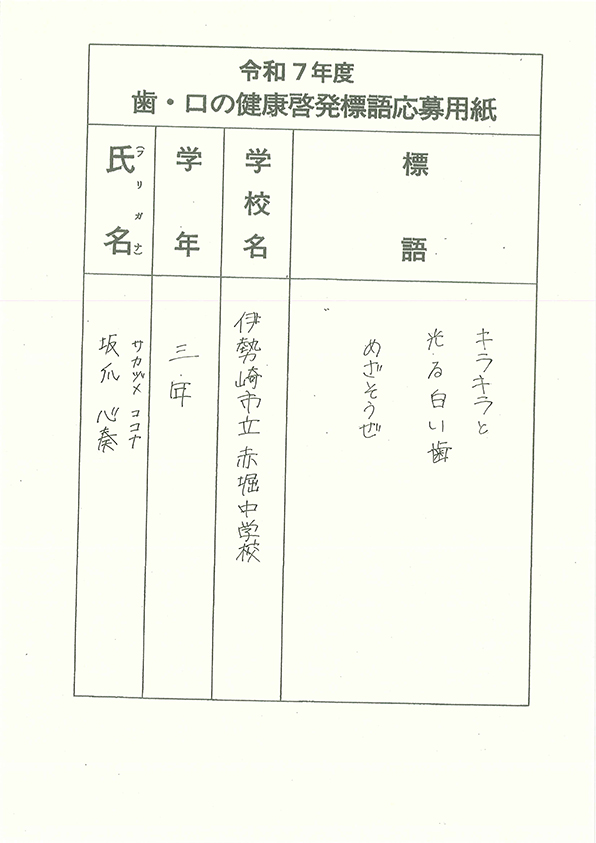 令和７年度
歯・口の健康啓発標語応募用紙
標語
キラキラと
光る白い歯
めざそうぜ
学校名
伊勢崎市立赤堀中学校
学年
三年
氏名（フリガナ）
サカヅメ ココナ
坂爪 心奏